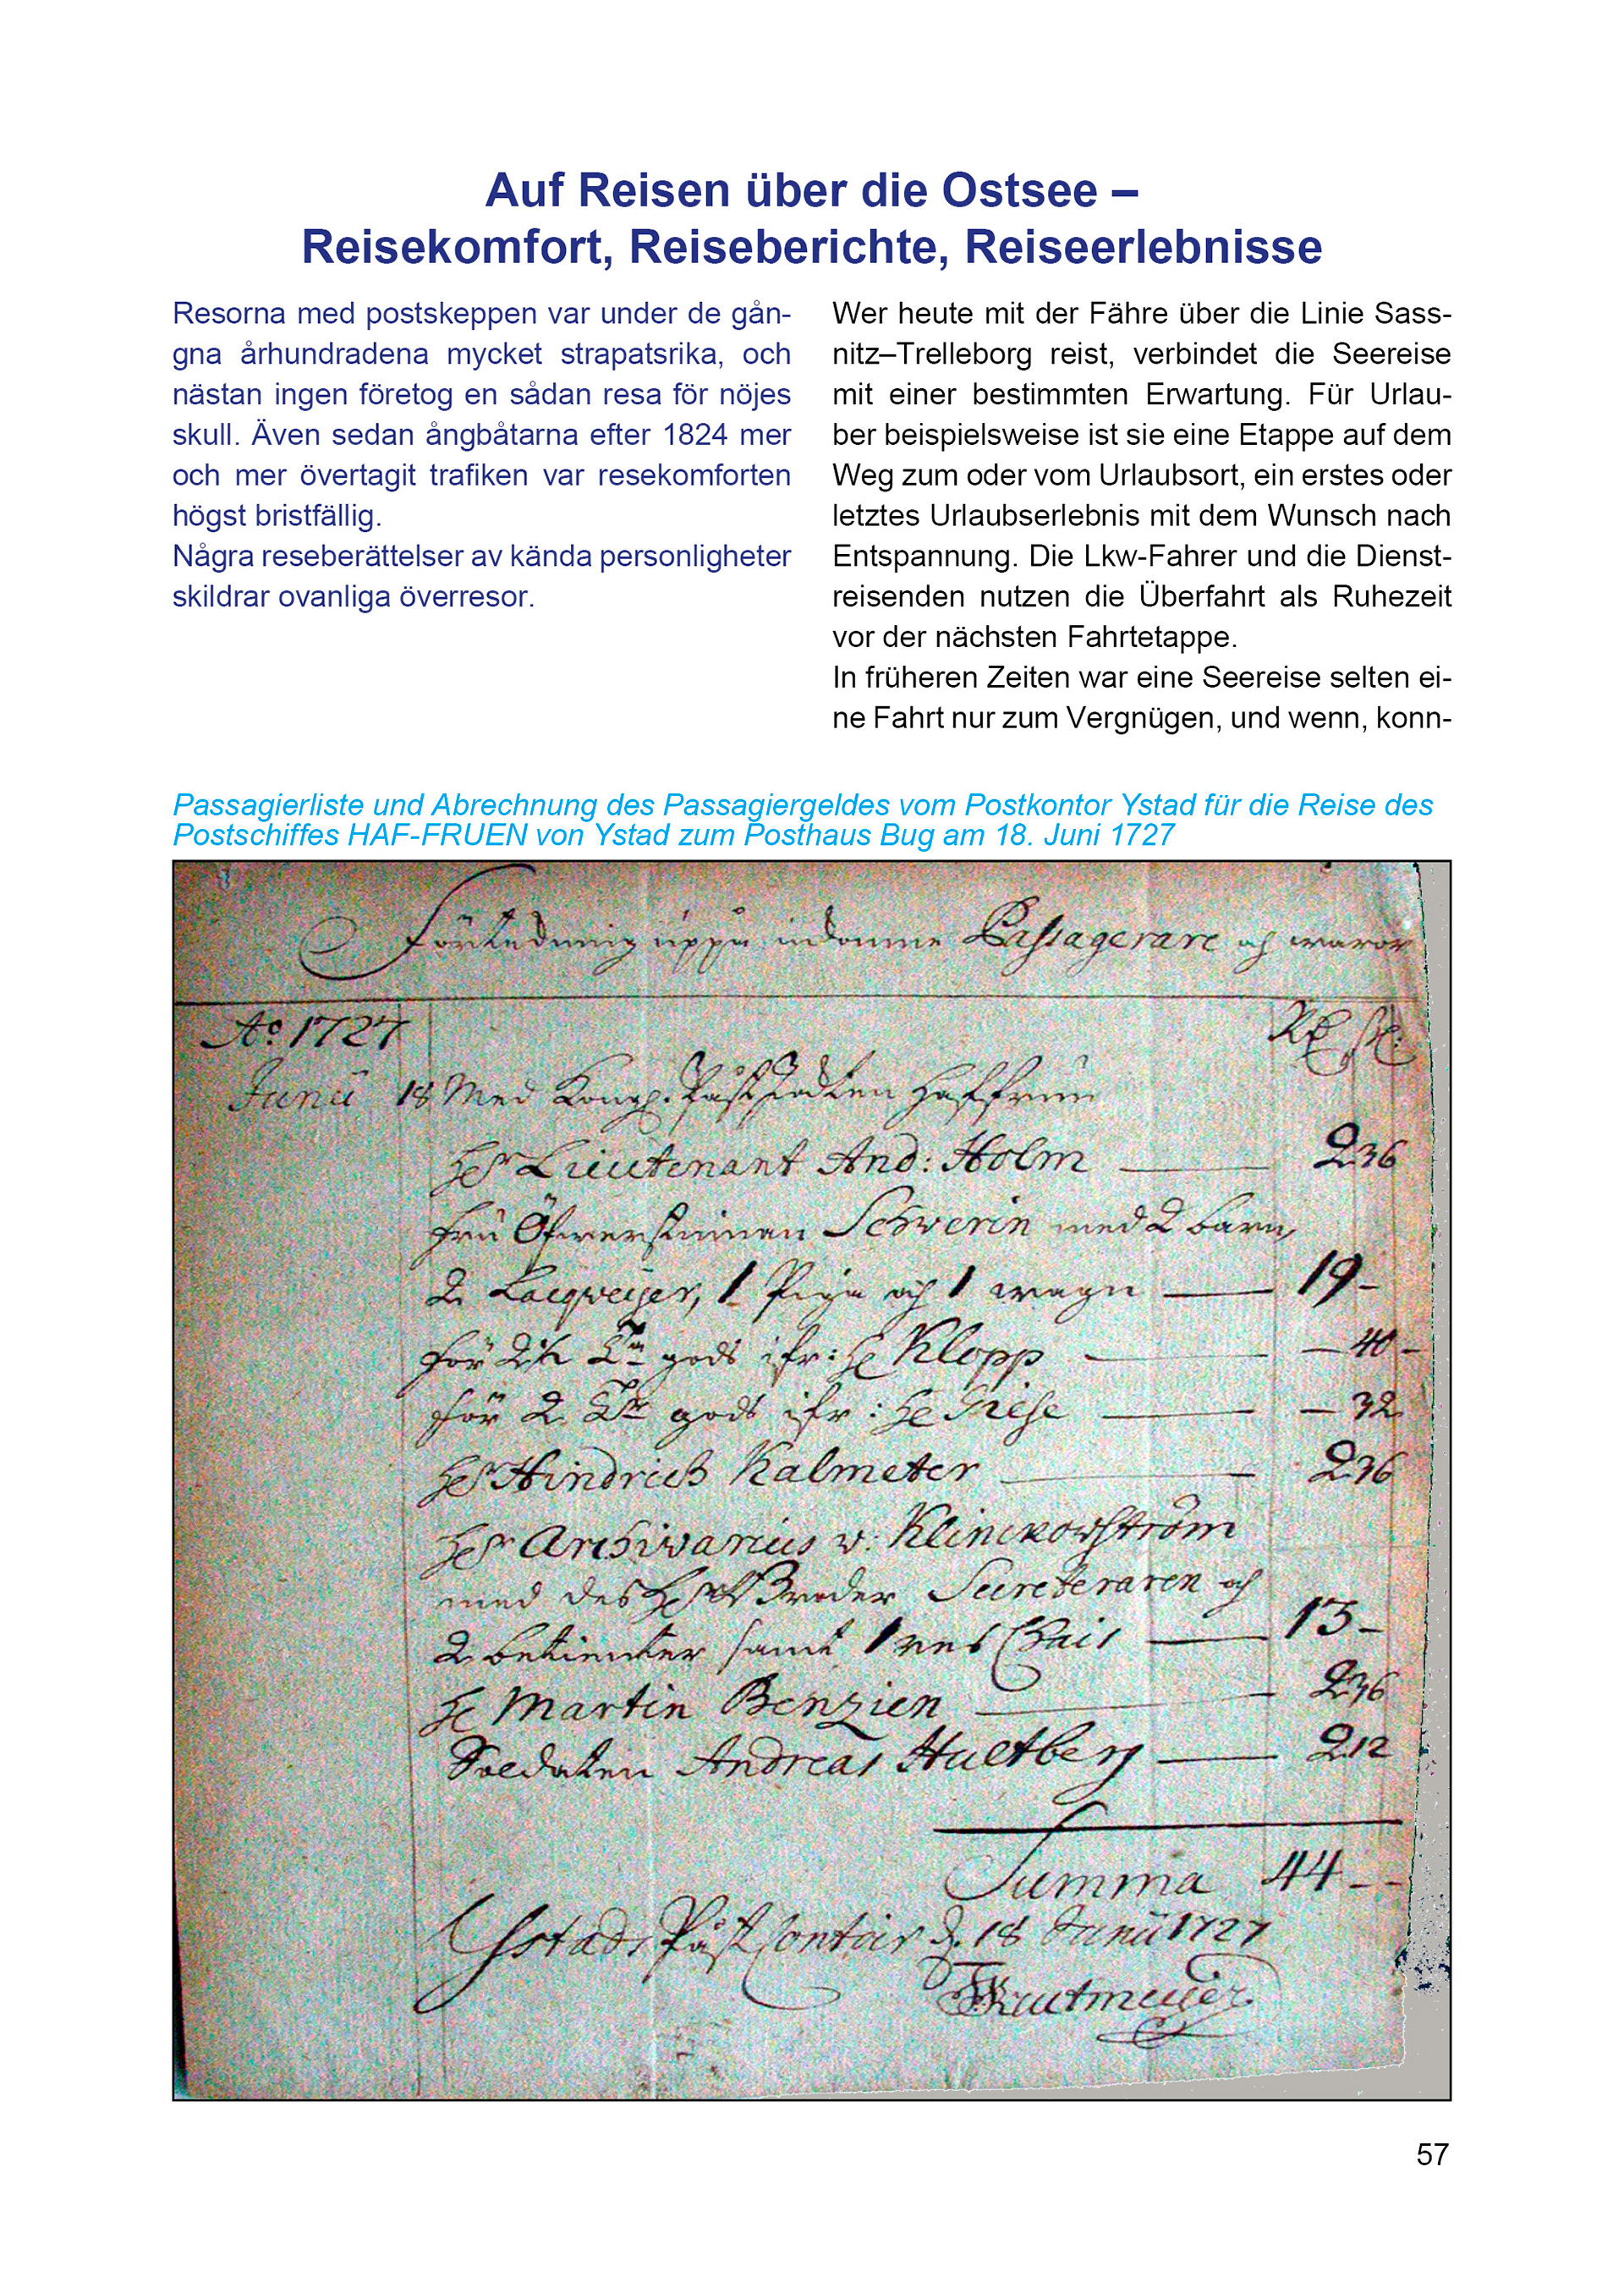 Auf Reisen über die Ostsee –
Reisekomfort, Reiseberichte, Reiseerlebnisse
Resorna med postskeppen var under de gån-
gna århundradena mycket strapatsrika, och
nästan ingen företog en sådan resa för nöjes
skull. Även sedan ångbåtarna efter 1824 mer
och mer övertagit trafiken var resekomforten
högst bristfällig.
Några reseberättelser av kända personligheter
skildrar ovanliga överresor.
Wer heute mit der Fähre über die Linie Sass-
nitz–Trelleborg reist, verbindet die Seereise
mit einer bestimmten Erwartung. Für Urlau-
ber beispielsweise ist sie eine Etappe auf dem
Weg zum oder vom Urlaubsort, ein erstes oder
letztes Urlaubserlebnis mit dem Wunsch nach
Entspannung. Die Lkw-Fahrer und die Dienst-
reisenden nutzen die Überfahrt als Ruhezeit
vor der nächsten Fahrtetappe.
In früheren Zeiten war eine Seereise selten ei-
ne Fahrt nur zum Vergnügen, und wenn, konn-
Passagierliste und Abrechnung des Passagiergeldes vom Postkontor Ystad für die Reise des
Postschiffes HAF-FRUEN von Ystad zum Posthaus Bug am 18. Juni 1727
Passagerare och waror
Ao. 1727
Junii 18 Med Kongl. Haffrun
Lieutenant And: Holm 2 36
Fru Öfwerstinnan Schwerin med 2 barn,
2 Lacqveijer, 1 Piga och 1 wagn 19 -
för gods ifr: Klopp - 40 -
för 2 gods ifr: - 32
Hindrich Kalmeter 2 36
Archivarius v: Klinckowström
med des Broder Secreteraren och
2 betienter samt 1 res Chais 13 -
Martin Benzien 2 36
Soldaten Andreas Hultberg 2 12
Summa 44 - -
Ystads Påst Contoir d. 18 Junii 1727
57